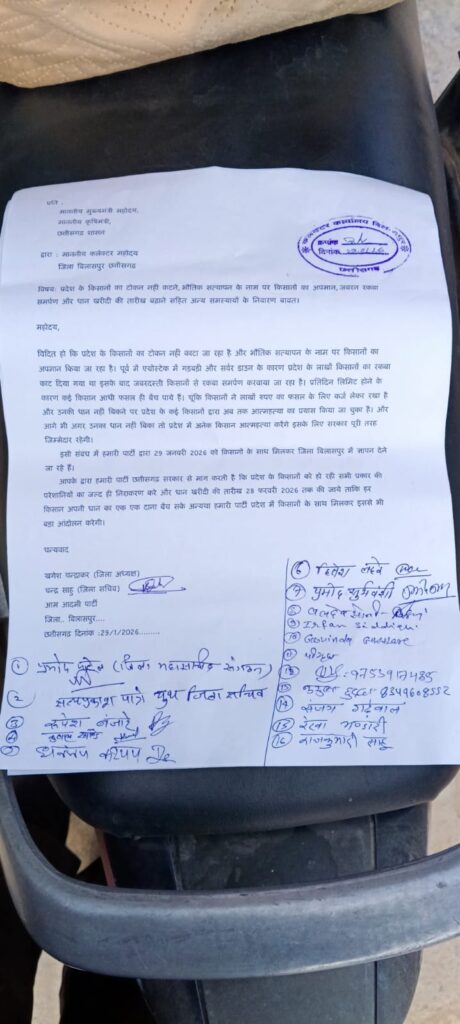 प्रति ,
माननीय मुख्यमंत्री महोदय,
माननीय कृषिमंत्री,
छत्तीसगढ़ शासन
द्वारा : माननीय कलेक्टर महोदय
जिला बिलासपुर छत्तीसगढ़
कलेक्टर कार्यालय
क्रमांक
दिनांक
छत्तीसगढ़
विषयः प्रदेश के किसानों का टोकन नही कटने, भौतिक सत्यापन के नाम पर किसानों का अपमान, जबरन रकबा
समर्पण और धान खरीदी की तारीख बढ़ाने सहित अन्य समस्यायों के निवारण बाबत।
महोदय,
विदित हो कि प्रदेश के किसानों का टोकन नही काटा जा रहा है और भौतिक सत्यापन के नाम पर किसानों का
अपमान किया जा रहा है। पूर्व में एग्रीस्टेक में गड़बड़ी और सर्वर डाउन के कारण प्रदेश के लाखों किसानों का रकबा
काट दिया गया था इसके बाद जबरदस्ती किसानों से रकबा समर्पण करवाया जा रहा है। प्रतिदिन लिमिट होने के
कारण कई किसान अपनी फसल ही बेच पाये हैं। चूकि किसानों ने लाखों रुपए का फसल के लिए कर्ज लेकर रखा है
और उनकी धान नही बिकने पर प्रदेश के कई किसानों द्वारा अब तक आत्महत्या का प्रयास किया जा चुका है। और
आगे भी अगर उनका धान नही बिका तो प्रदेश में अनेक किसान आत्महत्या करेंगे इसके लिए सरकार पूरी तरह
जिम्मेदार रहेगी।
इसी संबंध में हमारी पार्टी द्वारा 29 जनवरी 2026 को किसानों के साथ मिलकर जिला बिलासपुर में ज्ञापन देने
जा रहे हैं।
आपके द्वारा हमारी पार्टी छत्तीसगढ़ सरकार से मांग करती है कि प्रदेश के किसानों को हो रही सभी प्रकार की
परेशानियों का जल्द ही निराकरण करे और धान खरीदी की तारीख 28 फरवरी 2026 तक की जाये ताकि हर
किसान अपनी धान का एक एक दाना बेच सके अन्यथा हमारी पार्टी प्रदेश में किसानों के साथ मिलकर इससे भी
बड़ा आन्दोलन करेगी।
धन्यवाद
खगेश चन्द्राकर (जिला अध्यक्ष)
चन्द्र साहु (जिला सचिव)
आम आदमी पार्टी
जिला.. बिलासपुर....
छत्तीसगढ़ दिनांक :29/1/2026.........
① प्रमोद पटेल (जिला महासचिव संगठन)
② सत्यप्रकाश पात्रे यूथ जिला सचिव
रूपेश बंजारे
धनंजय कश्यप
⑥
⑦ प्रमोद सूर्यवंशी
⑧
⑨ Irfan Siddiqui
⑩ Govinda
⑪
⑫ 9755917485
⑬ 8349608552
⑭ संजय गढ़ेवाल
⑮ रेखा भण्डारी
⑯ राजकुमारी साहू